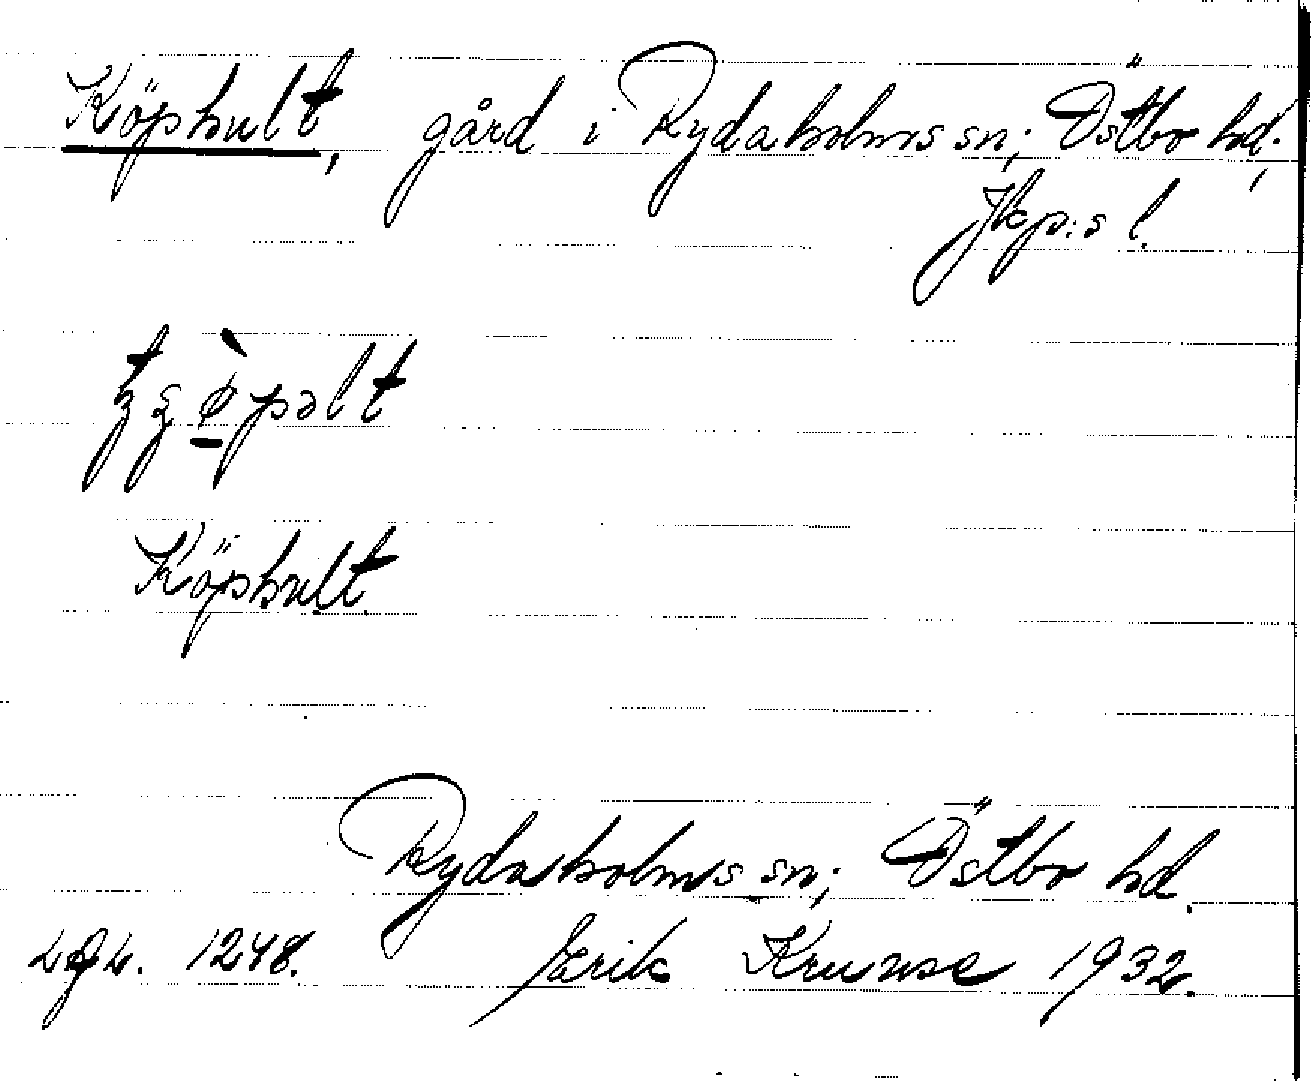 Köphult, gård i Rydaholms sn; Östbo hd;
Jkp:s l.
Köphult
Rydaholms sn; Östbo hd.
1248. Erik Krunse 1932.